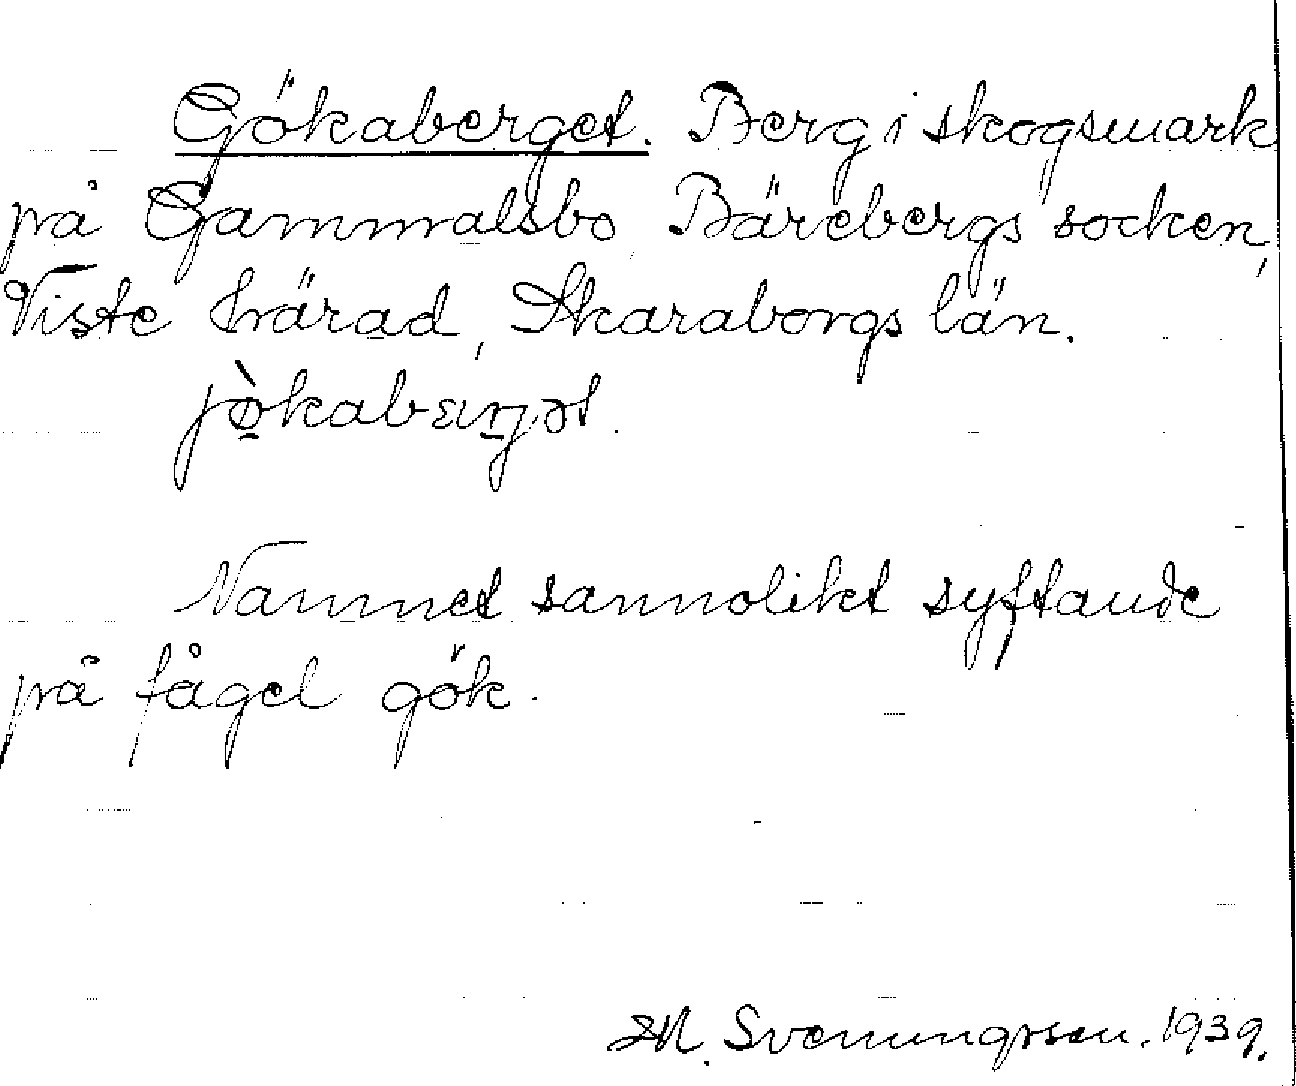 Gökaberget. Berg i skogsmark
på Gammalsbo Bärebergs socken,
Viste härad, Skaraborgs län.
Namnet sannolikt syftande
på fågel gök.
M. Svenungsson. 1939.